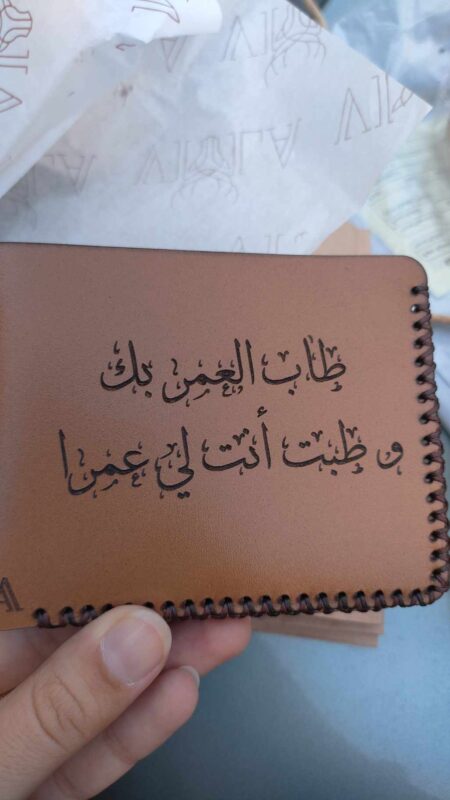 طاب العمر بك
و طبت أنت لي عمرا